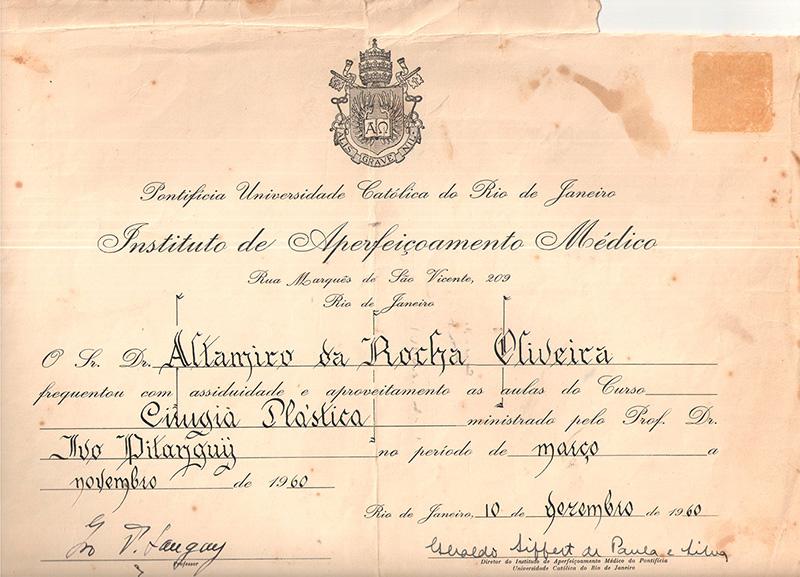 ΑΩ
ALIS GRAVE NIL
Pontifícia Universidade Católica do Rio de Janeiro
Instituto de Aperfeiçoamento Médico
Rua Marquês de São Vicente, 209
Rio de Janeiro
O Sr. Dr. Altamiro da Rocha Oliveira
frequentou com assiduidade e aproveitamento as aulas do Curso
Cirugia Plástica ministrado pelo Prof. Dr.
Ivo Pitanguÿ no período de março a
novembro de 1960
Rio de Janeiro, 10 de dezembro de 1960
Ivo Pitanguy
Professor
Geraldo Siffert de Paula e Silva
Diretor do Instituto de Aperfeiçoamento Médico da Pontifícia
Universidade Católica do Rio de Janeiro